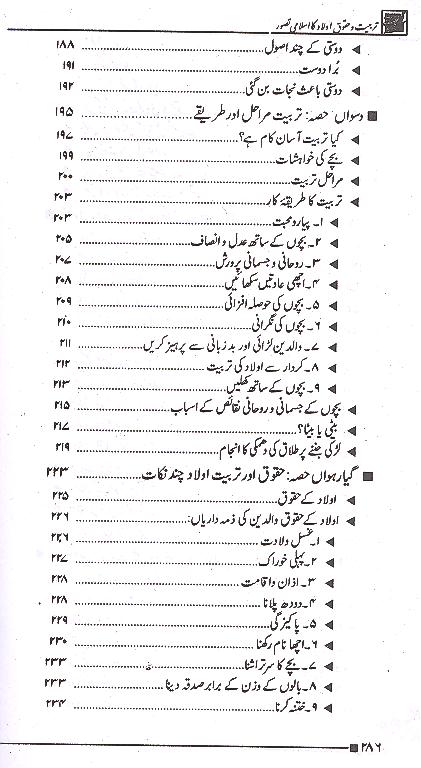 تربیت و حقوق اولاد کا اسلامی تصور
◄ دوستی کے چند اصول ۱۸۸
◄ بُرا دوست ۱۹۱
◄ دوستی باعث نجات بن گئی ۱۹۲
■ دسواں حصہ: تربیت مراحل اور طریقے ۱۹۵
◄ کیا تربیت آسان کام ہے؟ ۱۹۷
◄ بچے کی خواہشات ۱۹۹
◄ مراحل تربیت ۲۰۰
◄ تربیت کا طریقۂ کار ۲۰۳
◄ ۱۔ پیار و محبت ۲۰۳
◄ ۲۔ بچوں کے ساتھ عدل و انصاف ۲۰۵
◄ ۳۔ روحانی و جسمانی پرورش ۲۰۷
◄ ۴۔ اچھی عادتیں سکھائیں ۲۰۸
◄ ۵۔ بچوں کی حوصلہ افزائی ۲۰۹
◄ ۶۔ بچوں کی نگرانی ۲۱۰
◄ ۷۔ والدین لڑائی اور بد زبانی سے پرہیز کریں ۲۱۱
◄ ۸۔ کردار سے اولاد کی تربیت ۲۱۲
◄ ۹۔ بچوں کے ساتھ کھیلیں ۲۱۳
◄ بچوں کے جسمانی و روحانی نقائص کے اسباب ۲۱۵
◄ بیٹی یا بیٹا؟ ۲۱۷
◄ لڑکی جننے پر طلاق کی دھمکی کا انجام ۲۱۹
■ گیارہواں حصہ: حقوق اور تربیت اولاد چند نکات ۲۲۳
◄ اولاد کے حقوق ۲۲۵
◄ اولاد کے حقوق والدین کی ذمہ داریاں: ۲۲۶
◄ ۱۔ غسل ولادت ۲۲۶
◄ ۲۔ پہلی خوراک ۲۲۷
◄ ۳۔ اذان و اقامت ۲۲۸
◄ ۴۔ دودھ پلانا ۲۲۸
◄ ۵۔ پاکیزگی ۲۲۹
◄ ۶۔ اچھا نام رکھنا ۲۳۰
◄ ۷۔ بچے کا سر تراشنا ۲۳۳
◄ ۸۔ بالوں کے وزن کے برابر صدقہ دینا ۲۳۳
◄ ۹۔ ختنہ کرنا ۲۳۴
۲۸۶